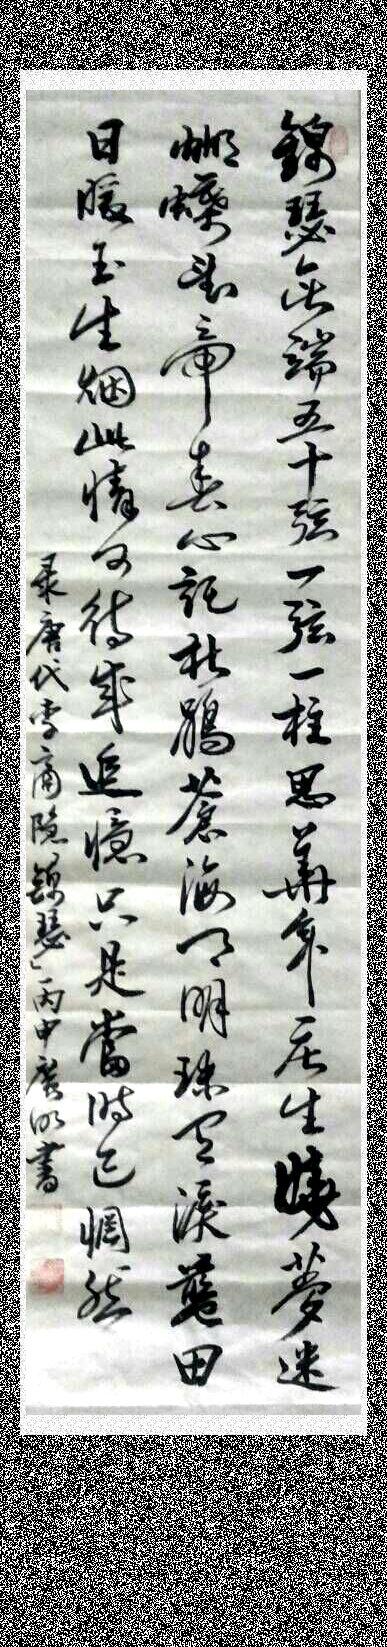 錦瑟無端五十弦一弦一柱思華年庄生曉夢迷
蝴蝶望帝春心託杜鵑蒼海月明珠有淚藍田
日暖玉生烟此情可待成追憶只是當時已惘然
录唐代李商隐「錦瑟」丙申廣明書